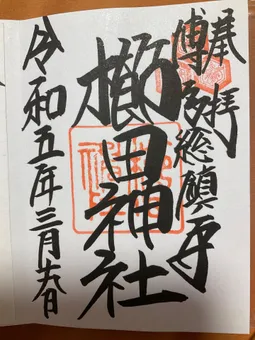 奉拝
博多総鎮守
櫛田神社
令和五年三月十六日